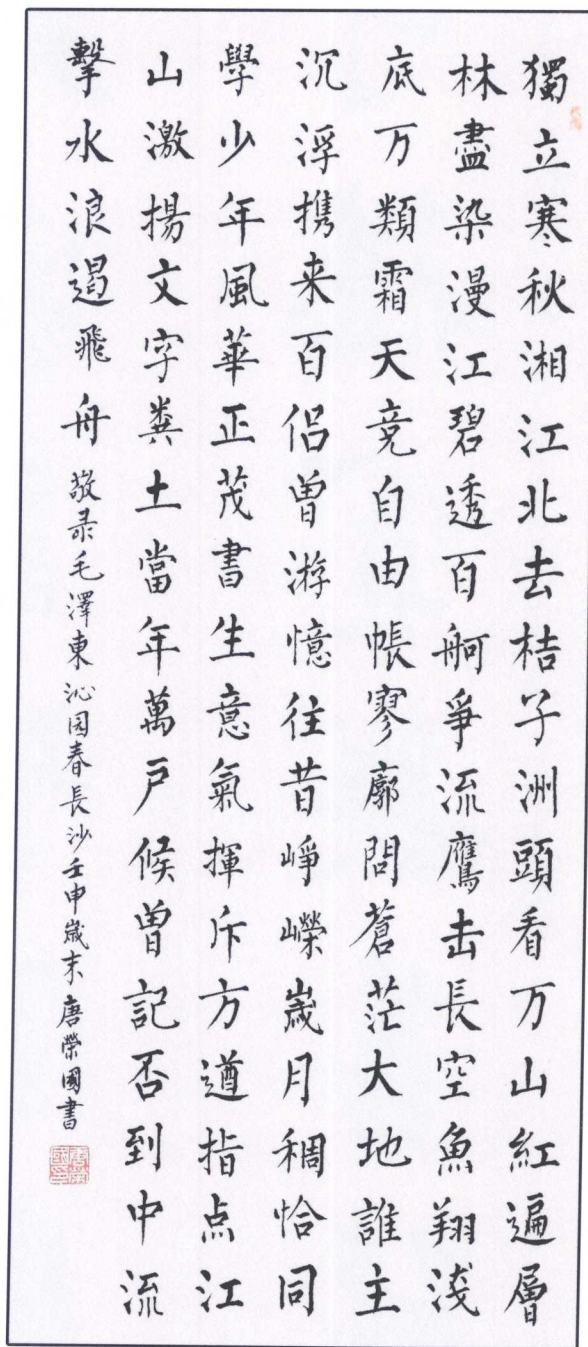 獨立寒秋湘江北去桔子洲頭看万山紅遍層
林盡染漫江碧透百舸爭流鷹击長空魚翔浅
底万類霜天竞自由帳寥廓問蒼茫大地誰主
沉浮携来百侣曾游憶往昔崢嶸歲月稠恰同
學少年風華正茂書生意氣揮斥方遒指点江
山激揚文字粪土當年萬戶候曾記否到中流
擊水浪遏飛舟
敬录毛澤東沁园春長沙壬申歲末唐榮國書